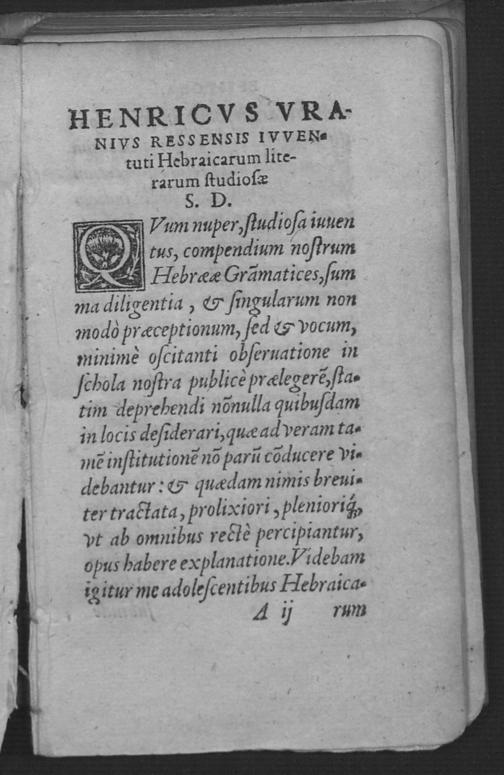 HENRICVS VRA-
NIVS RESSENSIS IVVEN-
tuti Hebraicarum lite-
rarum ſtudioſæ
S. D.
QVum nuper, ſtudioſa iuuen
tus, compendium noſtrum
Hebrææ Grãmatices, ſum
ma diligentia, & ſingularum non
modò præceptionum, ſed & vocum,
minimè oſcitanti obſeruatione in
ſchola noſtra publicè prælegerẽ, ſta-
tim deprehendi nõnulla quibuſdam
in locis deſiderari, quæ ad veram ta-
mẽ inſtitutionẽ nõ parũ cõducere vi-
debantur: & quædam nimis breui-
ter tractata, prolixiori, plenioriq́,
vt ab omnibus rectè percipiantur,
opus habere explanatione. Videbam
igitur me adoleſcentibus Hebraica-
A ij rum